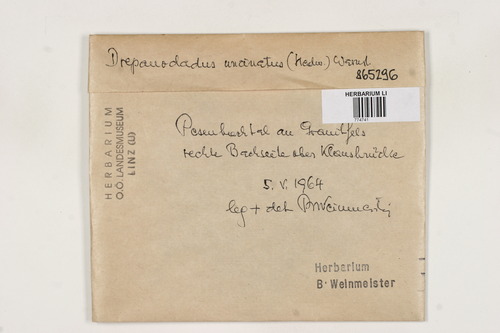 Drepanocladus uncinatus (Hedw.) Warnst.
865296
HERBARIUM LI
774741
HERBARIUM
O.Ö. LANDESMUSEUM
LINZ (LI)
Pesenbachtal an Granitfels
rechte Bachseite ober Klausbrücke
5. V. 1964
leg + det BWeinmeister
Herbarium
B. Weinmeister